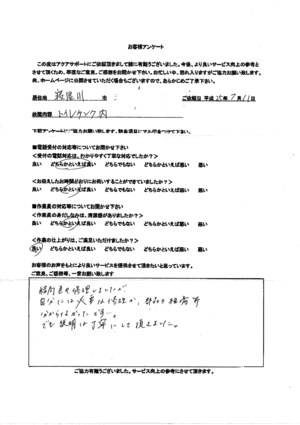 お客様アンケート
この度はアクアサポートにご依頼頂きまして誠に有難うございました。今後、より良いサービス向上の参考と
させて頂くため、率直なご意見、ご感想をお聞かせ下さい。お忙しい中、恐れ入りますがご協力お願い致します。
尚、ホームページに公開させていただく場合もございますので、あらかじめご了承下さい。
居住地 寝屋川 市 ご依頼日 平成 25年 7月 11日
依頼内容 トイレタンク内
下記アンケートにご協力お願い致します。該当項目にマル付をつけて下さい。
■電話受付の対応等についてお聞かせ下さい
<受付の電話対応は、わかりやすく丁寧な対応でしたか?>
良い どちらかといえば良い どちらでもない どちらかといえば悪い 悪い
<お伝えしたお時間どおりにお伺いすることができていましたか?>
良い どちらかといえば良い どちらでもない どちらかといえば悪い 悪い
■作業員の対応等についてお聞かせ下さい
<作業員の身だしなみは、清潔感がありましたか?>
良い どちらかといえば良い どちらでもない どちらかといえば悪い 悪い
<作業の仕上がりは、ご満足いただけましたか?>
良い どちらかといえば良い どちらでもない どちらかといえば悪い 悪い
お客様のお声をもとにより良いサービスを提供させて頂きたいと思っています。
ご意見、ご感想等、一言お願い致します
修理しましたが
自分には
分からなかったです…。
でも説明は丁寧にして頂きました。
ご協力有難うございました。サービス向上の参考にさせて頂きます。